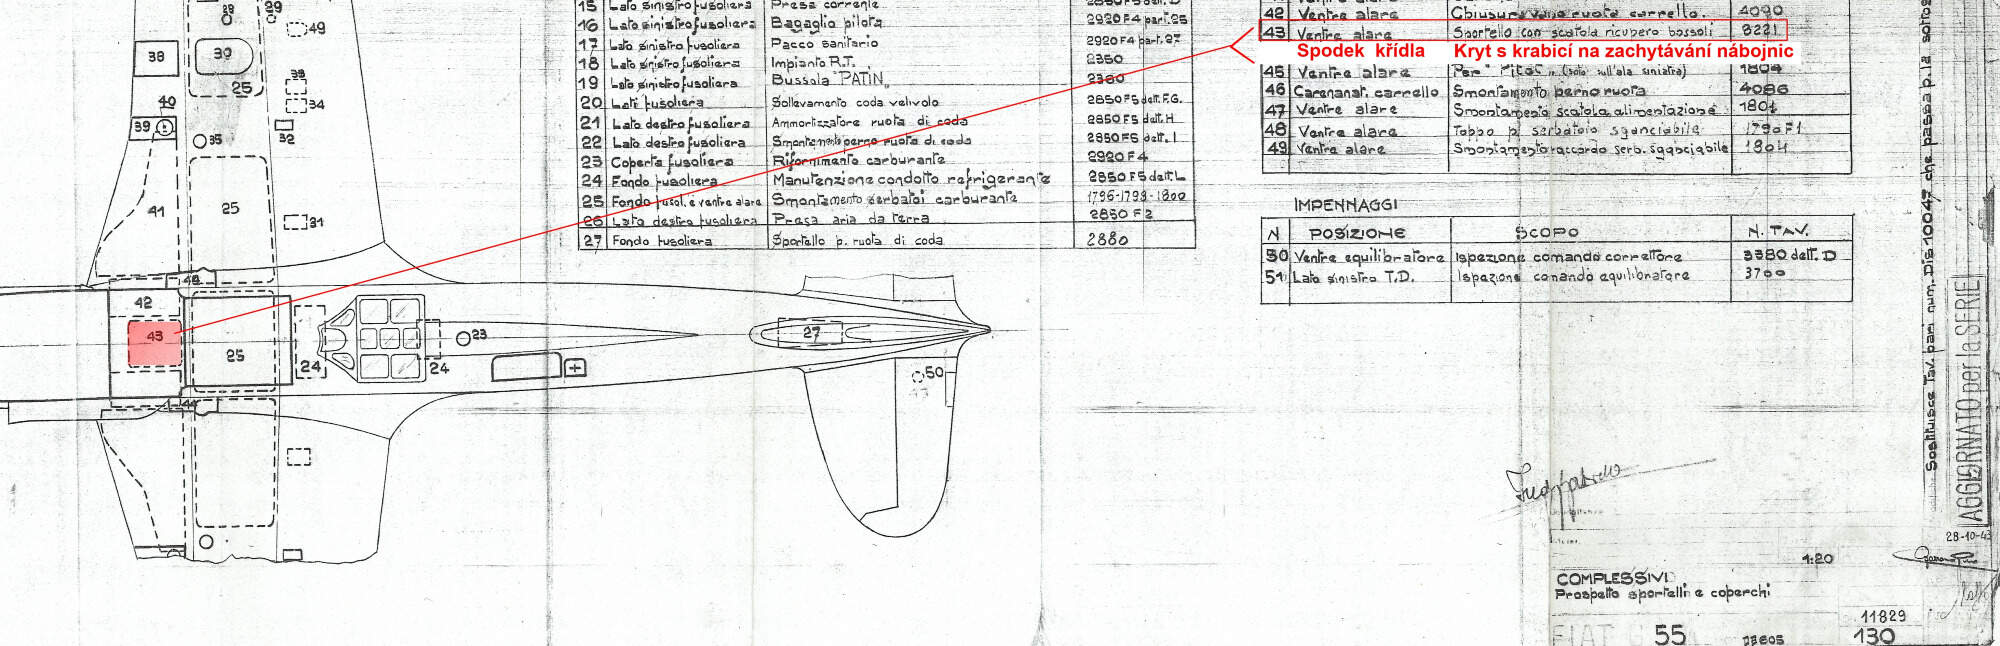 15 Lato sinistro fusoliera Presa corrente 2850 F5 dett. D
16 Lato sinistro fusoliera Bagaglio pilota 2920 F4 part. 25
17 Lato sinistro fusoliera Pacco sanitario 2920 F4 part. 27
18 Lato sinistro fusoliera Impianto R.T. 2350
19 Lato sinistro fusoliera Bussola "PATIN" 2380
20 Lati fusoliera Sollevamento coda velivolo 2850 F5 dett. F.G.
21 Lato destro fusoliera Ammortizzatore ruota di coda 2850 F5 dett. H
22 Lato destro fusoliera Smontamento perno ruota di coda 2850 F5 dett. I
23 Coperta fusoliera Rifornimento carburante 2920 F4
24 Fondo fusoliera Manutenzione condotto refrigerante 2850 F5 dett. L
25 Fondo fusol. e ventre alare Smontamento serbatoi carburante 1796-1798-1800
26 Lato destro fusoliera Presa aria da terra 2850 F2
27 Fondo fusoliera Sportello p. ruota di coda 2880
42 Ventre alare Chiusura vano ruota carrello. 4090
43 Ventre alare Sportello con scatola ricupero bossoli 8221
Spodek křídla Kryt s krabicí na zachytávání nábojnic
45 Ventre alare Per "Pitot" (solo sull'ala sinistra) 1804
46 Carenanat. carrello Smontamento perno ruota 4086
47 Ventre alare Smontamento scatola alimentazione 1801
48 Ventre alare Tappo p. serbatoio sganciabile 1790 F1
49 Ventre alare Smontamento raccordo serb. sganciabile 1804
IMPENNAGGI
N POSIZIONE SCOPO N. TAV.
50 Ventre equilibratore Ispezione comando correttore 3380 dett. D
51 Lato sinistro T.D. Ispezione comando equilibratore 3700
29
38
39
49
25
38
34
40
39
35
32
41
25
31
42
43
25
24
24
23
27
44
50
Sostituisce Tav. pari num. Dis 10047 che passa p. la sottos
AGGIORNATO per la SERIE
28-10-43
1:20
COMPLESSIVI
Prospetto sportelli e coperchi
11829
FIAT G 55
130